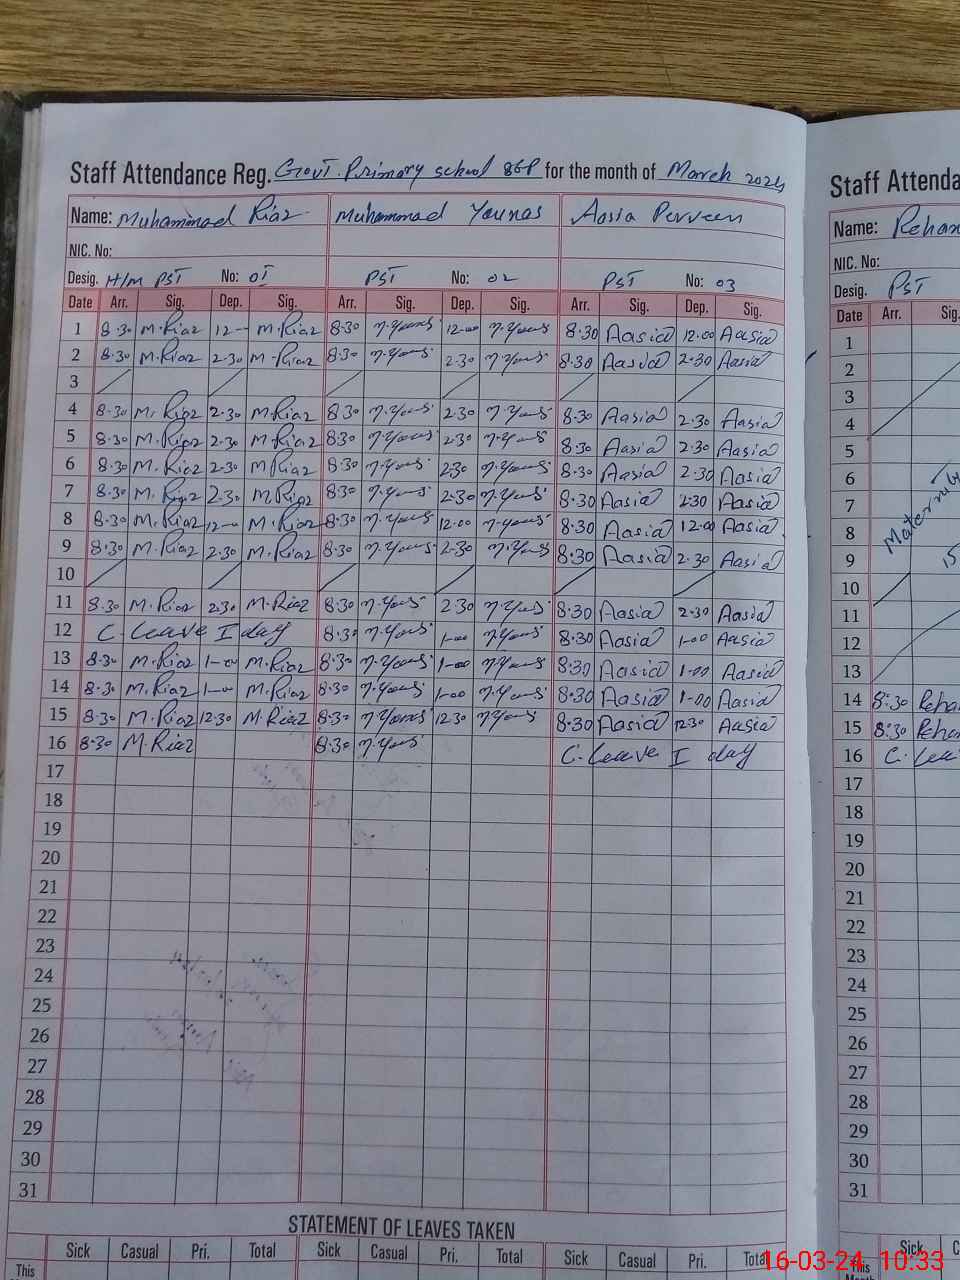 Staff Attendance Reg. Govt. Primary school 86P for the month of March 2024
Name: Muhammad Riaz Muhammad Younas Aasia Perveen
NIC. No:
Desig. H/M PST No: 01 PST No: 02 PST No: 03
Date Arr. Sig. Dep. Sig. Arr. Sig. Dep. Sig. Arr. Sig. Dep. Sig.
1 8.30 M.Riaz 12-- M.Riaz 8.30 M.Younas 12-00 M.Younas 8.30 Aasia 12.00 Aasia
2 8.30 M.Riaz 2.30 M.Riaz 8.30 M.Younas 2.30 M.Younas 8.30 Aasia 2.30 Aasia
3
4 8.30 M.Riaz 2.30 M.Riaz 8.30 M.Younas 2.30 M.Younas 8.30 Aasia 2.30 Aasia
5 8.30 M.Riaz 2.30 M.Riaz 8.30 M.Younas 2.30 M.Younas 8.30 Aasia 2.30 Aasia
6 8.30 M.Riaz 2.30 M.Riaz 8.30 M.Younas 2.30 M.Younas 8.30 Aasia 2.30 Aasia
7 8.30 M.Riaz 2.30 M.Riaz 8.30 M.Younas 2.30 M.Younas 8.30 Aasia 2.30 Aasia
8 8.30 M.Riaz 12-- M.Riaz 8.30 M.Younas 12.00 M.Younas 8.30 Aasia 12.00 Aasia
9 8.30 M.Riaz 2.30 M.Riaz 8.30 M.Younas 2.30 M.Younas 8.30 Aasia 2.30 Aasia
10
11 8.30 M.Riaz 2.30 M.Riaz 8.30 M.Younas 2.30 M.Younas 8.30 Aasia 2.30 Aasia
12 C. Leave I day 8.30 M.Younas 1-00 M.Younas 8.30 Aasia 1-00 Aasia
13 8.30 M.Riaz 1-00 M.Riaz 8.30 M.Younas 1-00 M.Younas 8.30 Aasia 1.00 Aasia
14 8.30 M.Riaz 1-00 M.Riaz 8.30 M.Younas 1-00 M.Younas 8.30 Aasia 1-00 Aasia
15 8.30 M.Riaz 12.30 M.Riaz 8.30 M.Younas 12.30 M.Younas 8.30 Aasia 12.30 Aasia
16 8.30 M.Riaz 8.30 M.Younas C. Leave I day
17
18
19
20
21
22
23
24
25
26
27
28
29
30
31
STATEMENT OF LEAVES TAKEN
Sick Casual Pri. Total Sick Casual Pri. Total Sick Casual Pri. Total
This
Staff Attenda
Name: Rehan
NIC. No:
Desig. PST
Date Arr. Sig.
1
2
3
4
5
6
7
8
9
Maternity
15
10
11
12
13
14 8:30 Reha
15 8:30 Reha
16 C. Lea
17
18
19
20
21
22
23
24
25
26
27
28
29
30
31
Sick
This
16-03-24 10:33